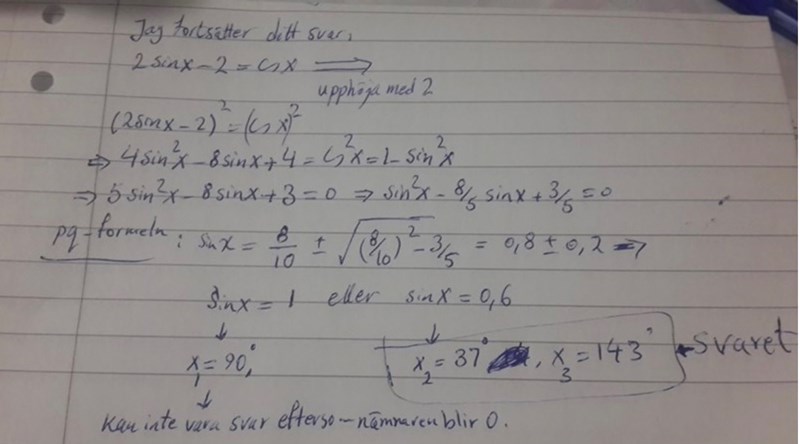 Jag fortsätter ditt svar,
2 sinx - 2 = cosx ⟹
upphöja med 2
(2sinx - 2)² = (cosx)²
⇒ 4sin²x - 8sinx + 4 = cos²x = 1 - sin²x
⇒ 5sin²x - 8sinx + 3 = 0 ⇒ sin²x - 8/5 sinx + 3/5 = 0
pq-formeln: sinx = 8/10 ± √((8/10)² - 3/5) = 0,8 ± 0,2 ⇒
sinx = 1 eller sinx = 0,6
↓ ↓
x₁ = 90°, x₂ = 37°, x₃ = 143° ← svaret
↓
kan inte vara svar efterso - nämnaren blir 0.